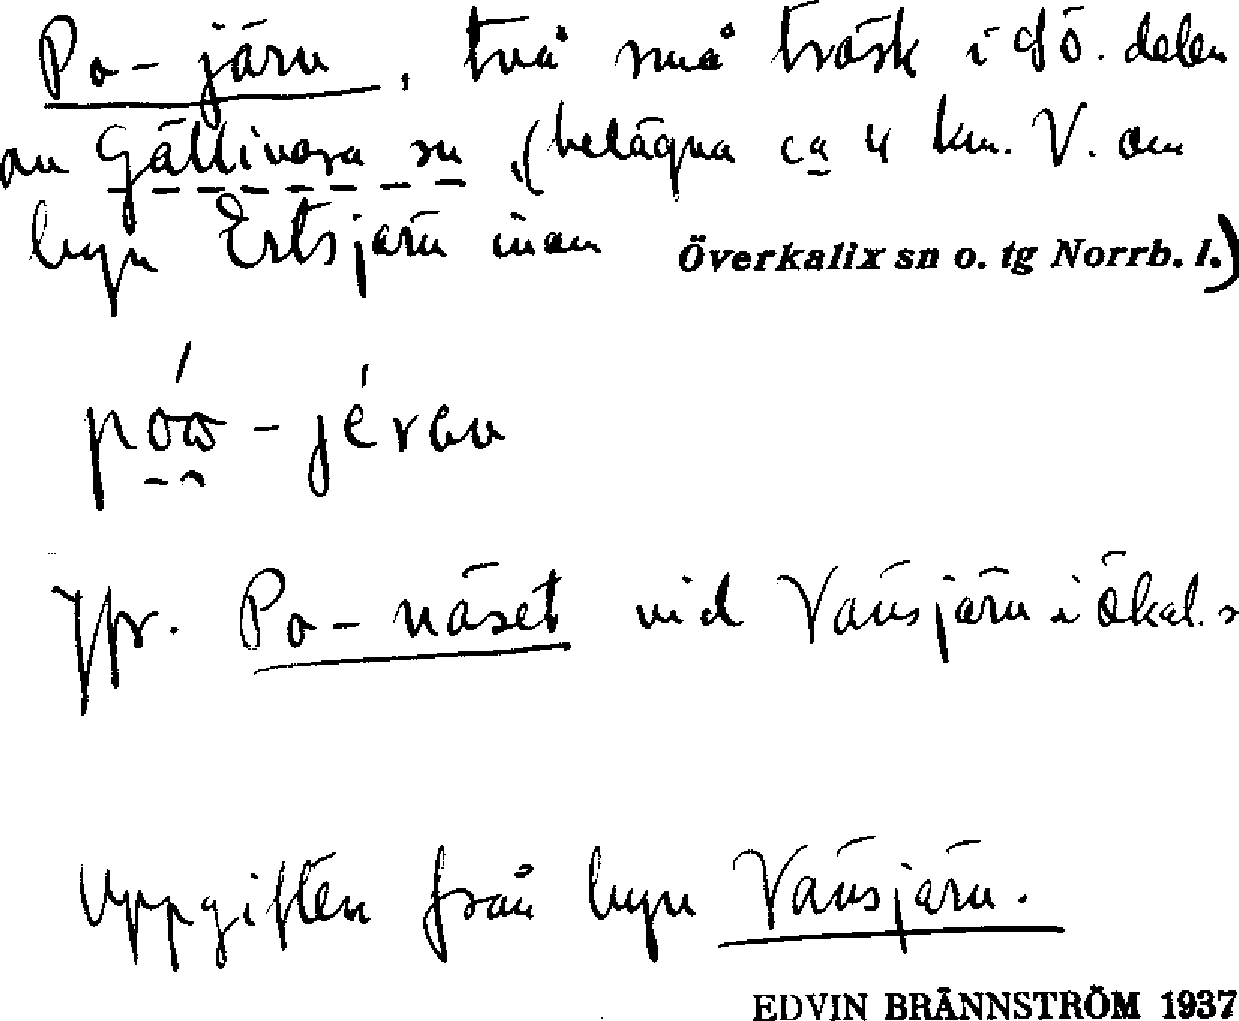 Po-järv, två små träsk i SÖ. delen
av Gällivara sn (belägna ca 4 km. V. om
byn Ertsjärv inom Överkalix sn o. tg Norrb. l.)
Jfr. Po-näset vid Vänsjärv i Ökal. s
Uppgiften från byn Vänsjärv.
EDVIN BRÄNNSTRÖM 1937